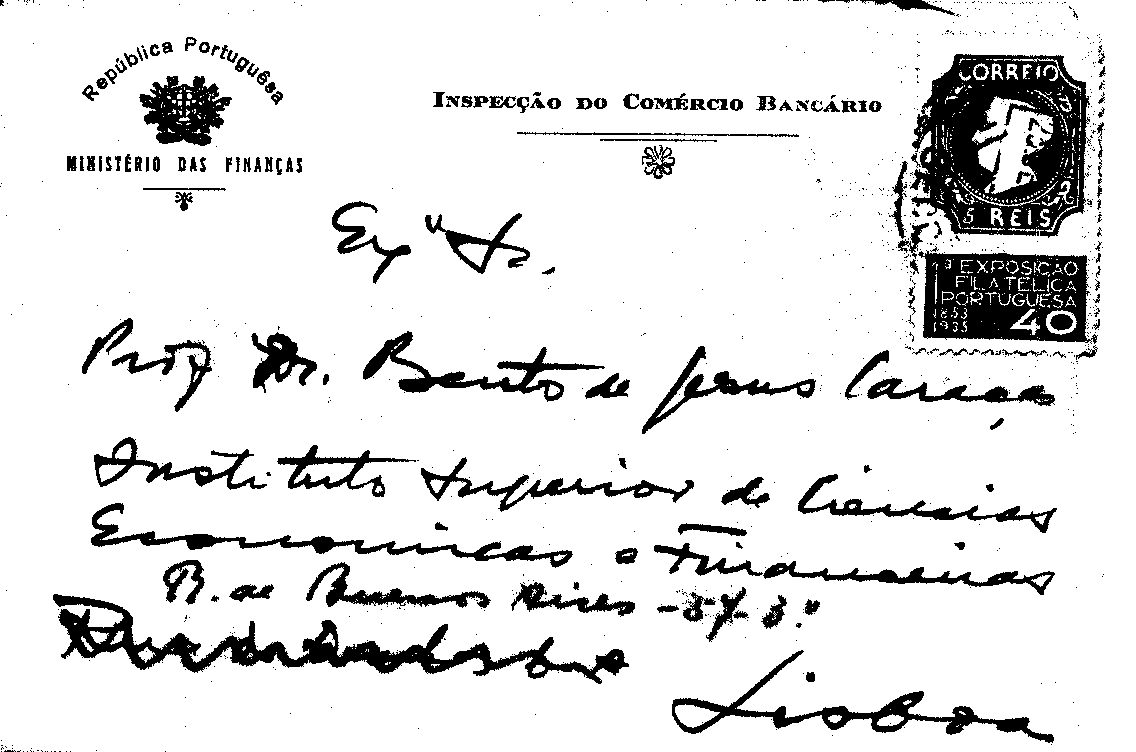 República Portuguêsa
MINISTÉRIO DAS FINANÇAS
INSPECÇÃO DO COMÉRCIO BANCÁRIO
CORREIO
5 REIS
1ª EXPOSIÇÃO
FILATÉLICA
PORTUGUESA
1853
1935
40
Exº Sr.
Prof Dr. Bento de Jesus Caraça
Instituto Superior de Ciencias
Economicas e Financeiras
R. de Buenos Aires - 57-3.º
Lisboa